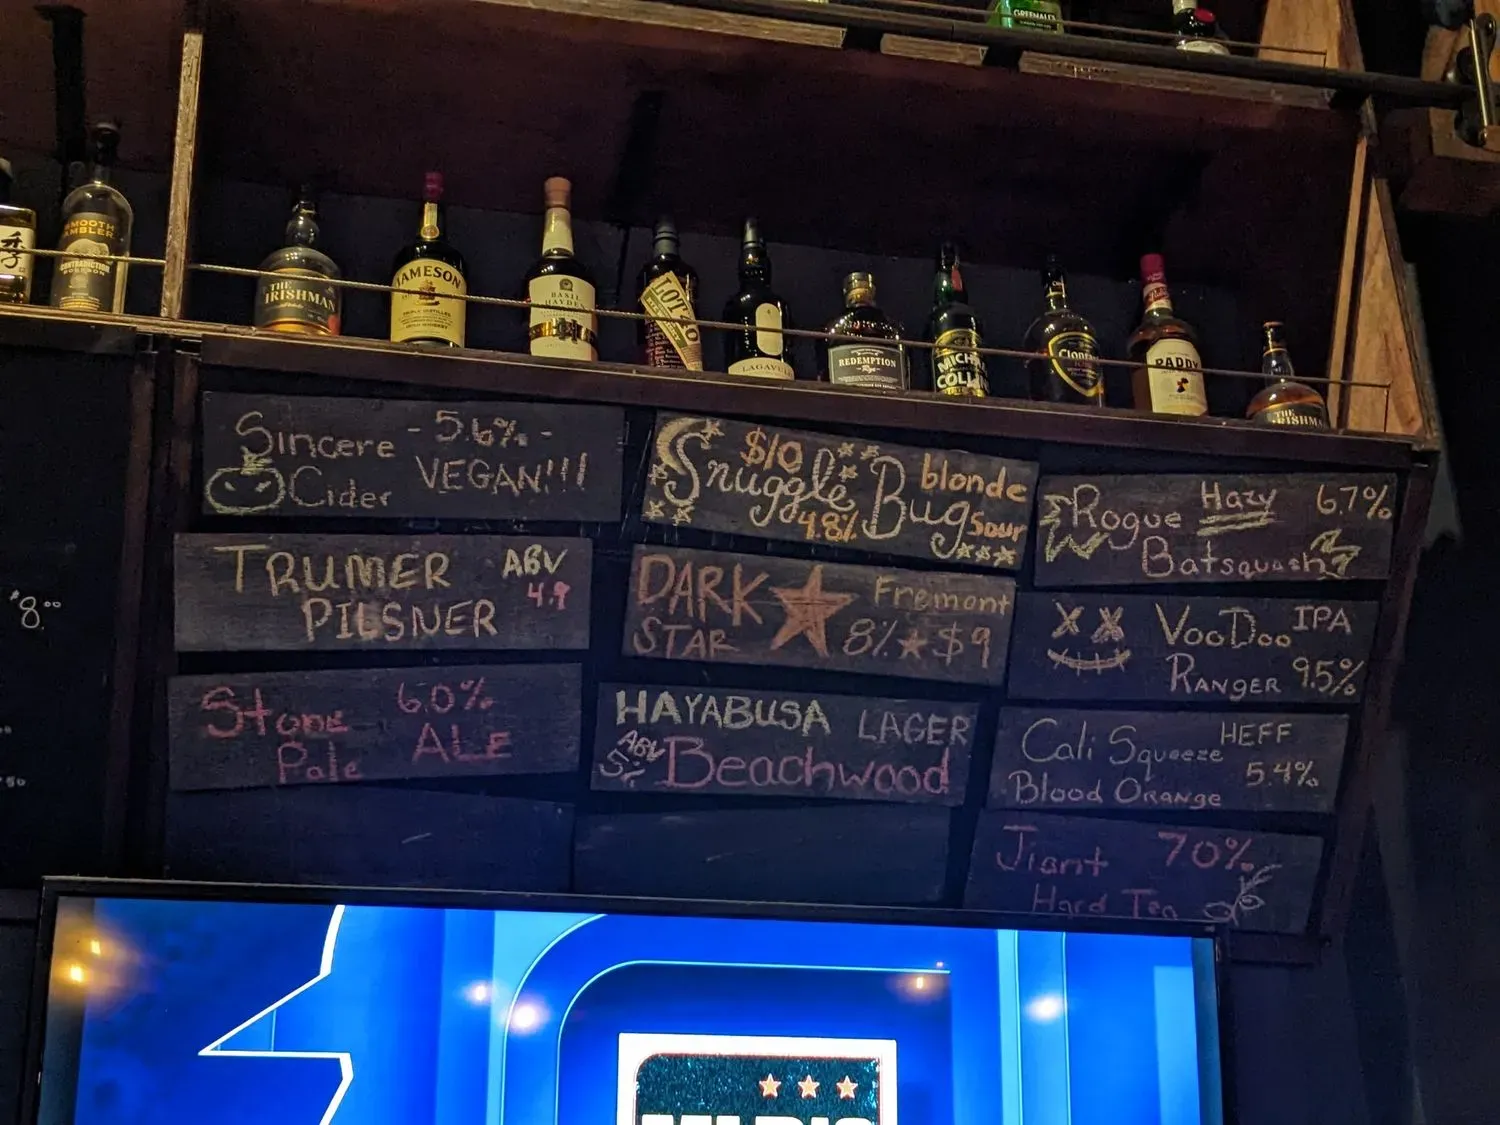 GREENALL'S
SMOOTH
AMBLER
CONTRADICTION
THE
IRISHMAN
JAMESON
TRIPLE DISTILLED
IRISH WHISKEY
BASIL
HAYDEN
LAGAVULIN
REDEMPTION
Rye
MICHAEL
COLLINS
PADDY
THE
IRISHMAN
Sincere
Cider
- 5.6% -
VEGAN!!!
TRUMER
PILSNER
ABV
4.9
Stone
Pale
6.0%
ALE
$10
Snuggle Bug
4.8%
blonde
sour
DARK
STAR
Fremont
8% ★ $9
HAYABUSA LAGER
ABV
Beachwood
Rogue Hazy 6.7%
Batsquash
VooDoo IPA
RANGER 9.5%
Cali Squeeze HEFF
Blood Orange 5.4%
Jiant 70%
Hard Tea
$8.00